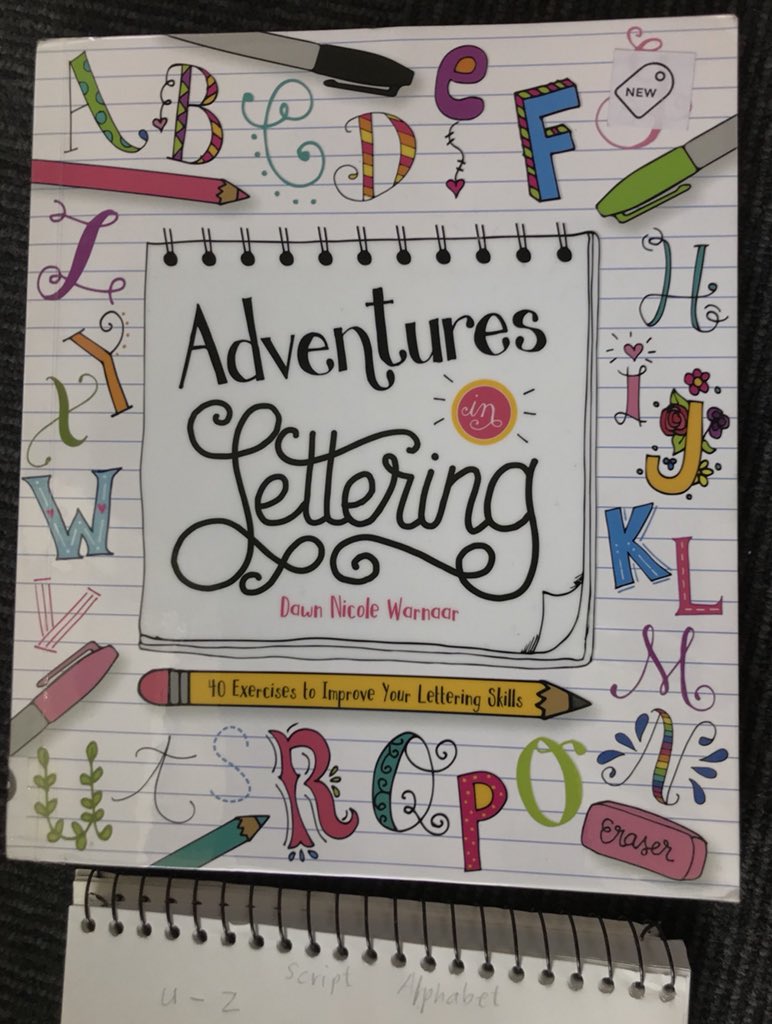 A B C D e F G
NEW
Z H
Adventures
in
Lettering
Dawn Nicole Warnaar
Y I
X J
W K L
V M
40 Exercises to Improve Your Lettering Skills
U t S R Q P O N
eraser
Script Alphabet
u - z